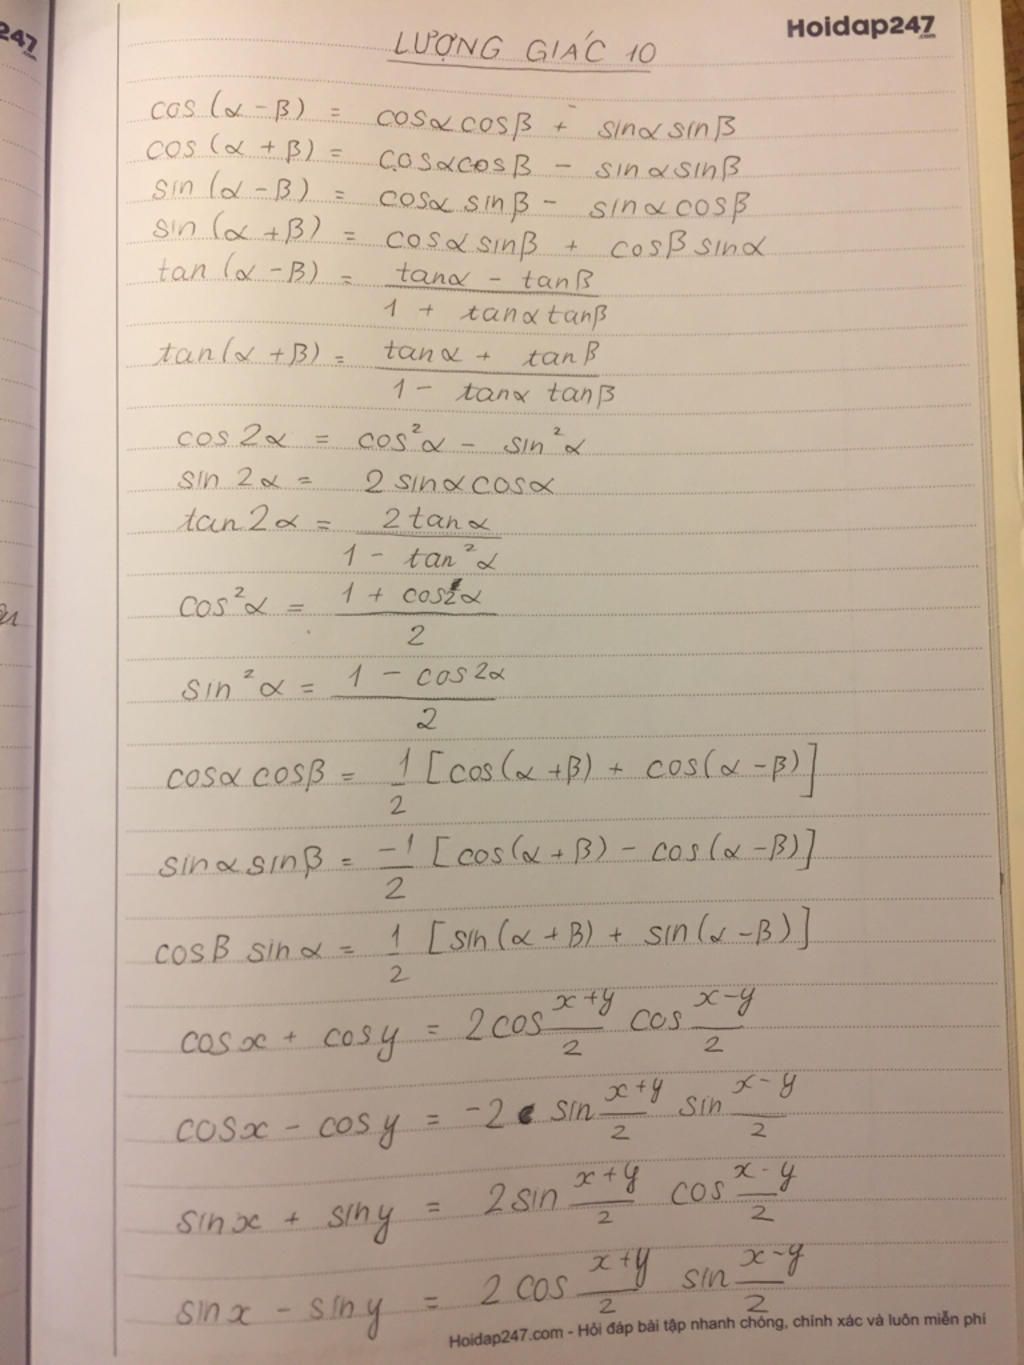 247
.com
Hoidap247
.com
LƯỢNG GIÁC 10
cos (α - β) = cosα cosβ + sinα sinβ
cos (α + β) = cosαcosβ - sinα sinβ
sin (α - β) = cosα sinβ - sinα cosβ
sin (α + β) = cosα sinβ + cosβ sinα
tan (α - β) = tanα - tanβ
1 + tanα tanβ
tan(α + β) = tanα + tanβ
1 - tanα tanβ
cos 2α = cos²α - sin²α
sin 2α = 2 sinα cosα
tan 2α = 2 tanα
1 - tan²α
cos²α = 1 + cos2α
2
sin²α = 1 - cos2α
2
cosα cosβ = 1 [cos(α + β) + cos(α - β)]
2
sinα sinβ = -1 [cos(α + β) - cos(α - β)]
2
cosβ sinα = 1 [sin(α + β) + sin(α - β)]
2
cosx + cosy = 2 cos x+y/2 cos x-y/2
cosx - cosy = -2 sin x+y/2 sin x-y/2
sinx + siny = 2 sin x+y/2 cos x-y/2
sinx - siny = 2 cos x+y/2 sin x-y/2
Hoidap247.com - Hỏi đáp bài tập nhanh chóng, chính xác và luôn miễn phí